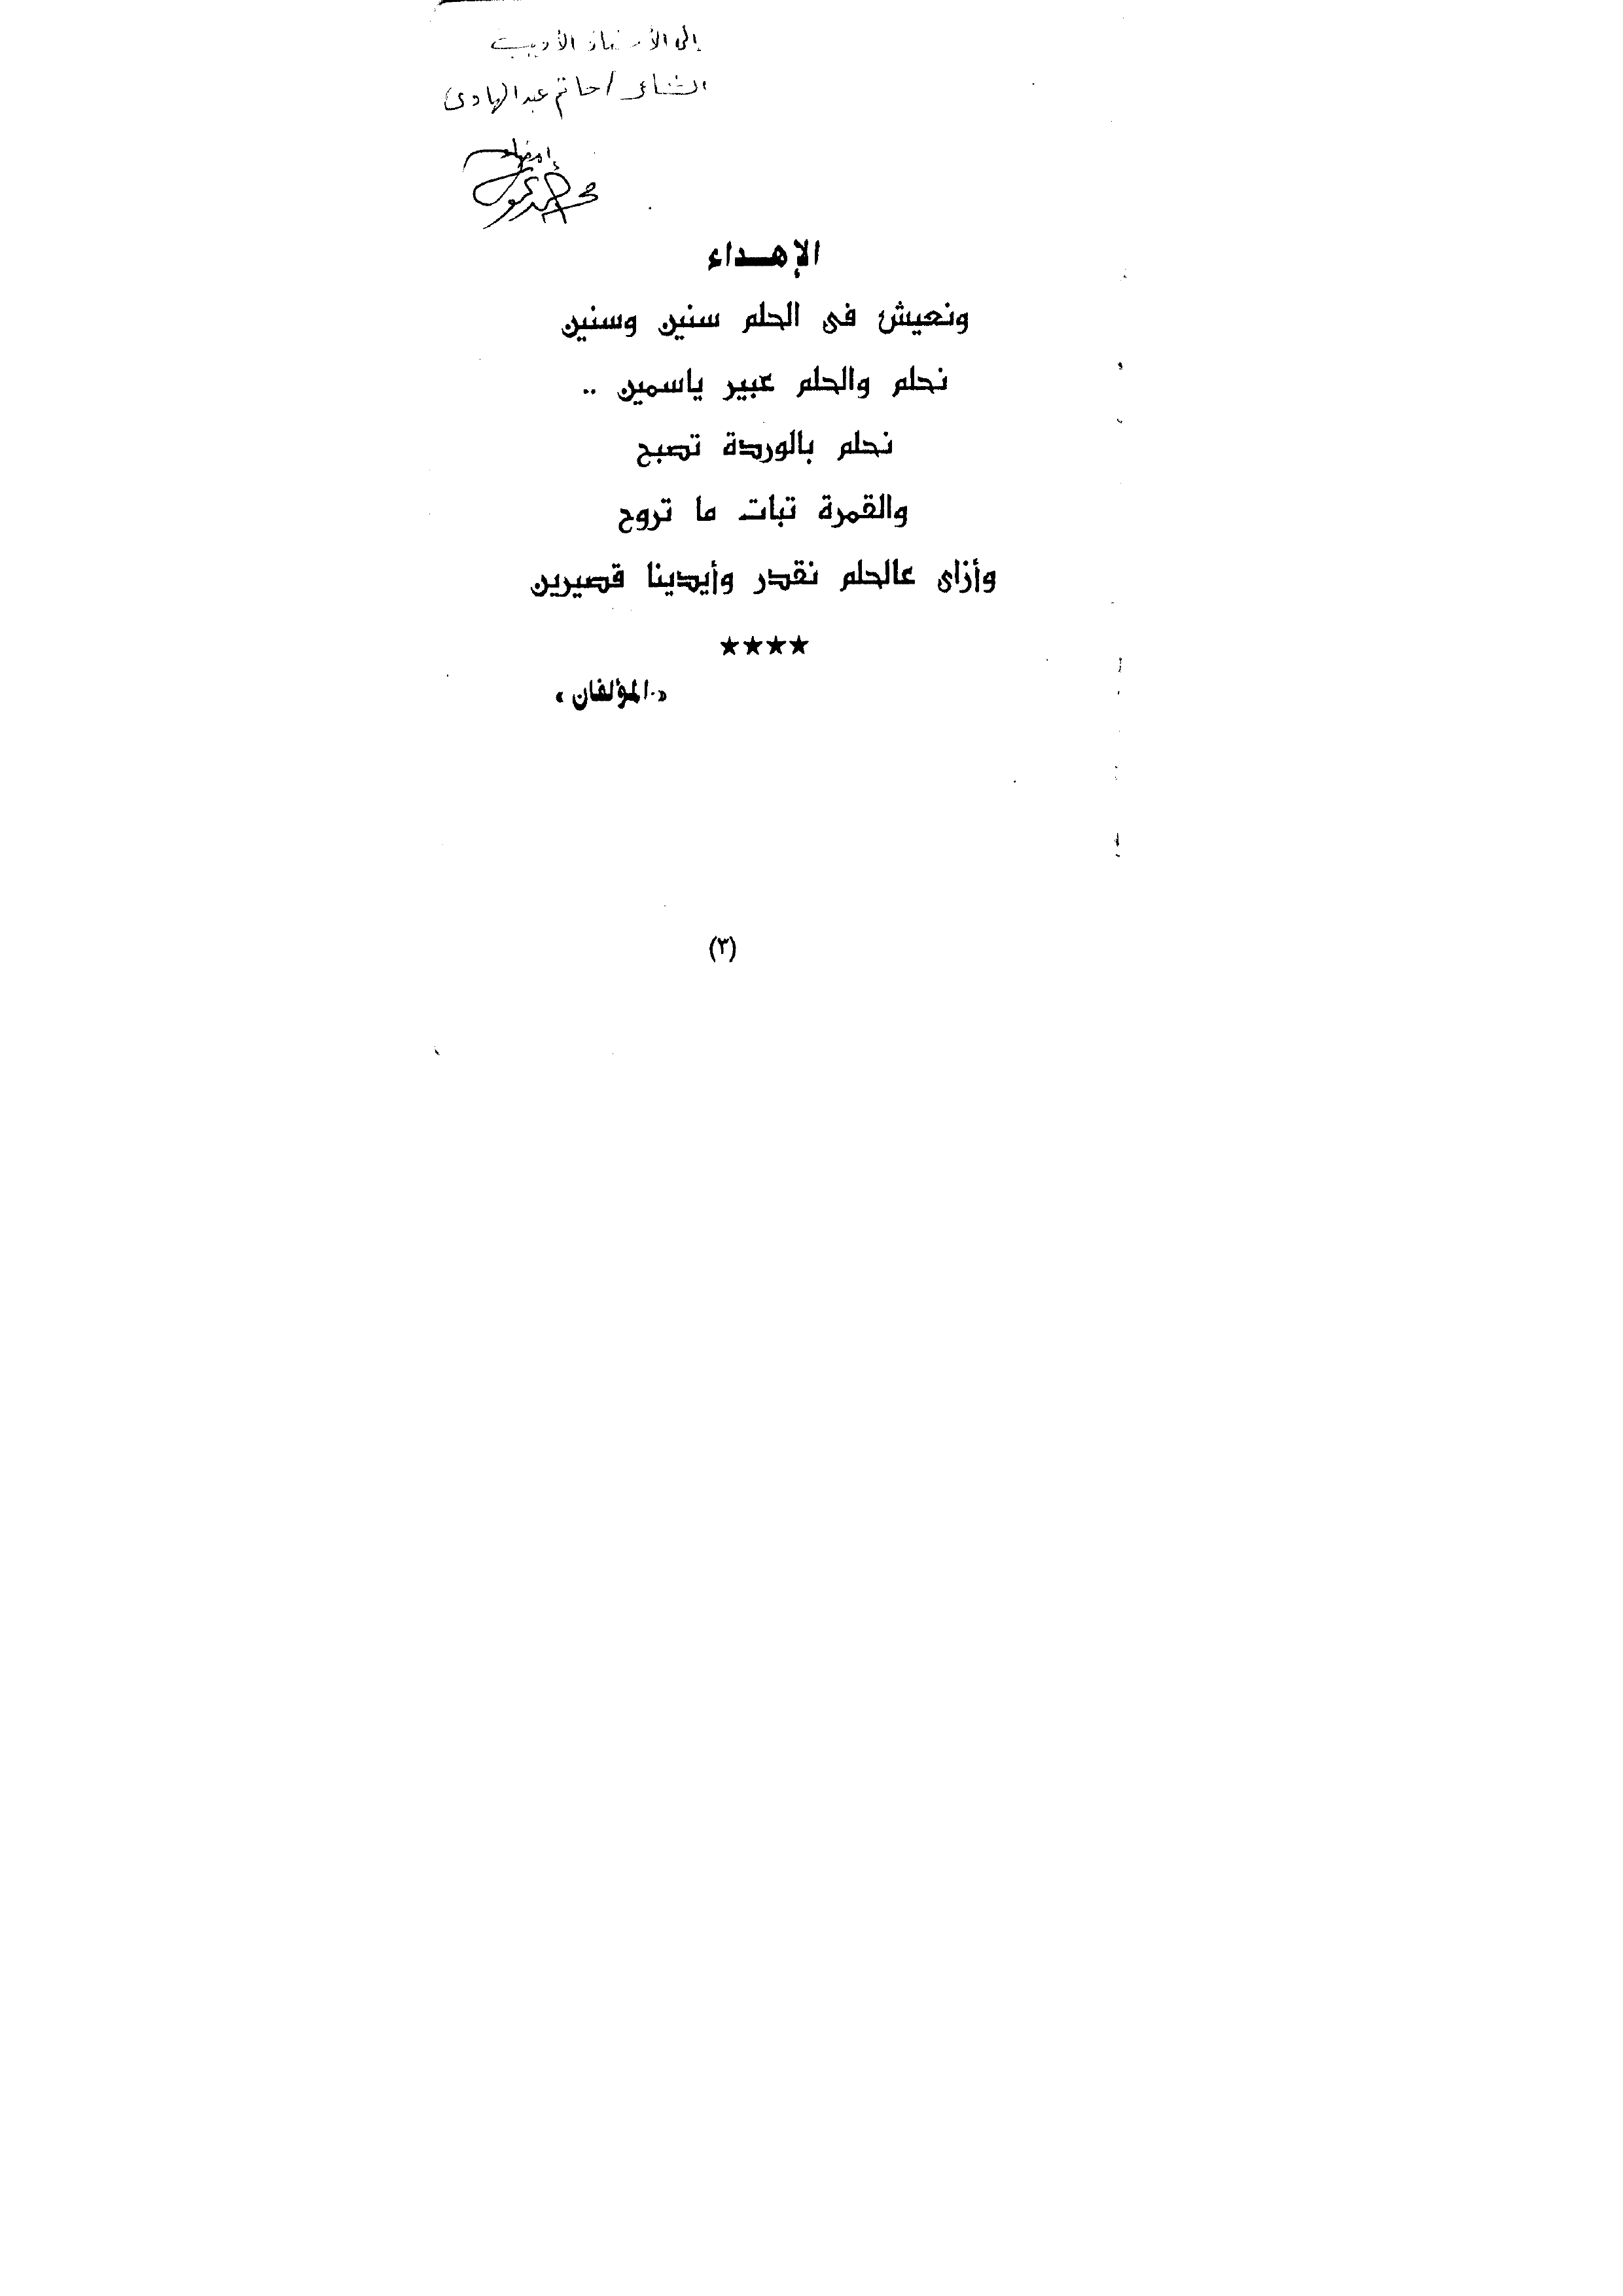 إلى الأستاذ الأديب
الشاعر / حاتم عبد الهادى
إمضاء
الإهـداء
ونعيش فى الحلم سنين وسنين
نحلم والحلم عبير ياسمين ..
نحلم بالوردة تصبح
والقمرة تبات ما تروح
وأزاى عالحلم نقدر وأيدينا قصيرين
★★★★
« المؤلفان »
(٣)